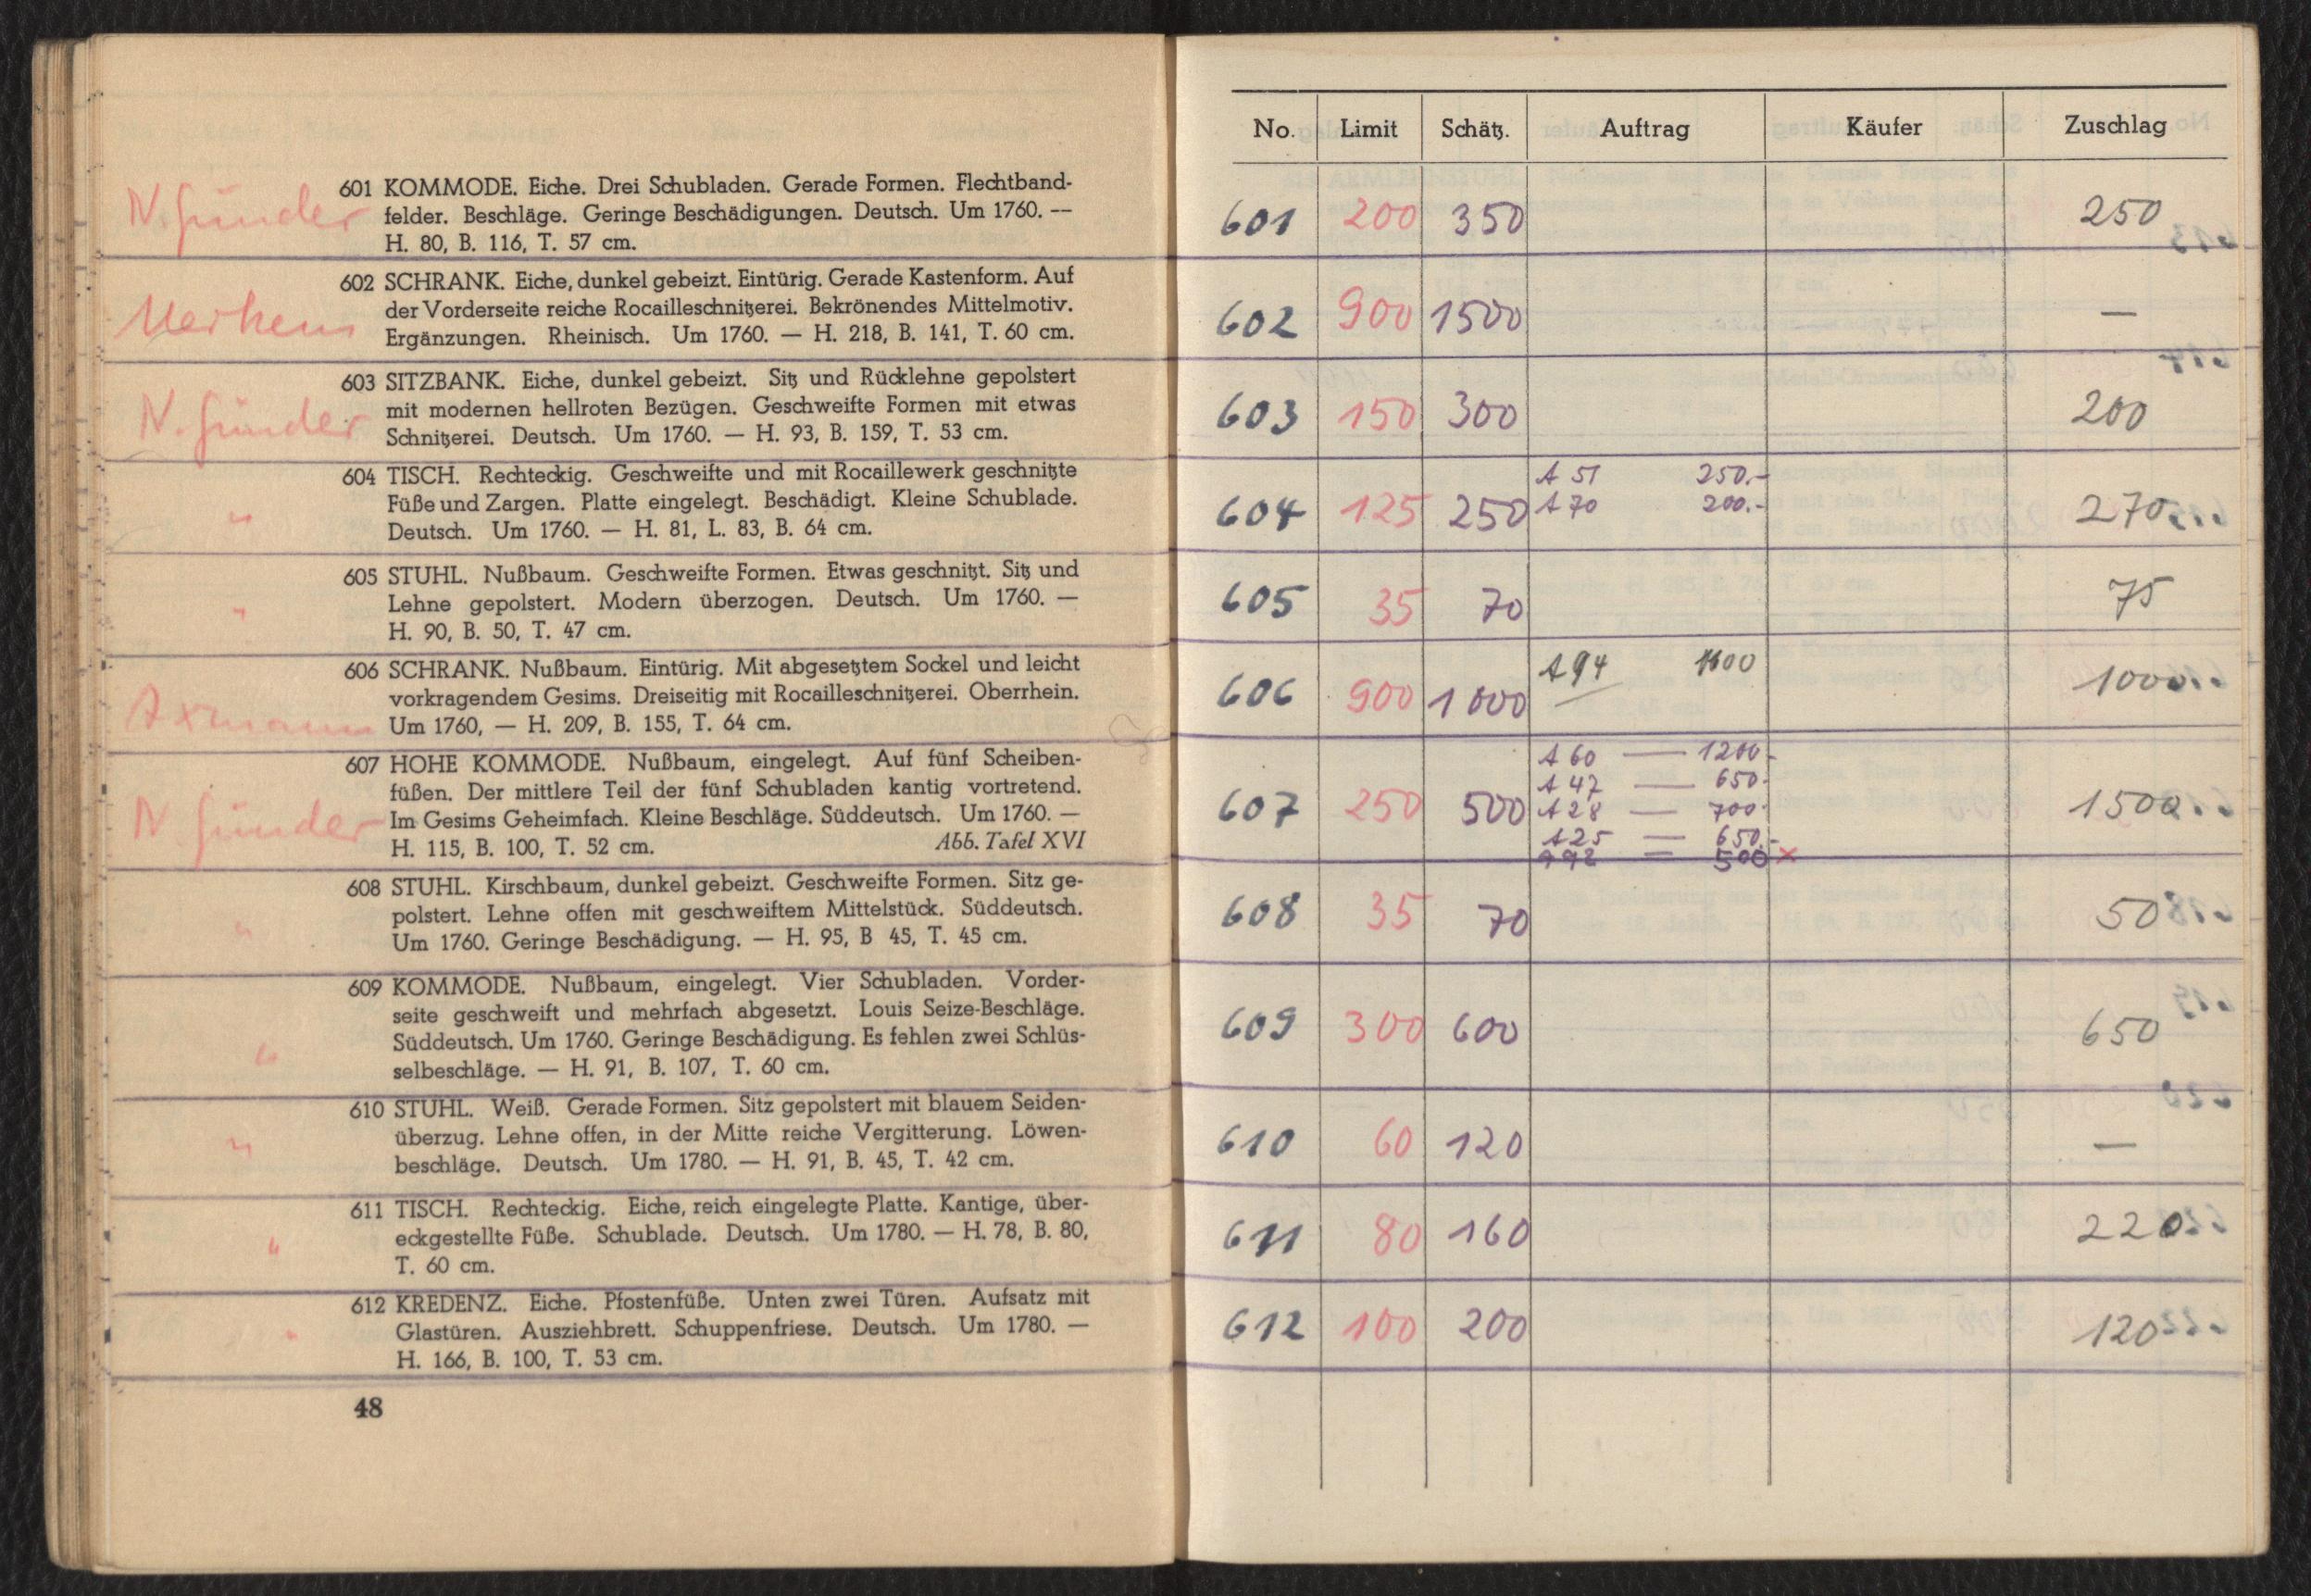 N. Günder
601 KOMMODE. Eiche. Drei Schubladen. Gerade Formen. Flechtband-
felder. Beschläge. Geringe Beschädigungen. Deutsch. Um 1760. --
H. 80, B. 116, T. 57 cm.
Merkens
602 SCHRANK. Eiche, dunkel gebeizt. Eintürig. Gerade Kastenform. Auf
der Vorderseite reiche Rocailleschnitzerei. Bekrönendes Mittelmotiv.
Ergänzungen. Rheinisch. Um 1760. — H. 218, B. 141, T. 60 cm.
N. Günder
603 SITZBANK. Eiche, dunkel gebeizt. Sitz und Rücklehne gepolstert
mit modernen hellroten Bezügen. Geschweifte Formen mit etwas
Schnitzerei. Deutsch. Um 1760. — H. 93, B. 159, T. 53 cm.
604 TISCH. Rechteckig. Geschweifte und mit Rocaillewerk geschnitzte
Füße und Zargen. Platte eingelegt. Beschädigt. Kleine Schublade.
" Deutsch. Um 1760. — H. 81, L. 83, B. 64 cm.
605 STUHL. Nußbaum. Geschweifte Formen. Etwas geschnitzt. Sitz und
" Lehne gepolstert. Modern überzogen. Deutsch. Um 1760. —
H. 90, B. 50, T. 47 cm.
606 SCHRANK. Nußbaum. Eintürig. Mit abgesetztem Sockel und leicht
vorkragendem Gesims. Dreiseitig mit Rocailleschnitzerei. Oberrhein.
Axmann
Um 1760, — H. 209, B. 155, T. 64 cm.
607 HOHE KOMMODE. Nußbaum, eingelegt. Auf fünf Scheiben-
füßen. Der mittlere Teil der fünf Schubladen kantig vortretend.
N Günder
Im Gesims Geheimfach. Kleine Beschläge. Süddeutsch. Um 1760. —
H. 115, B. 100, T. 52 cm. Abb. Tafel XVI
608 STUHL. Kirschbaum, dunkel gebeizt. Geschweifte Formen. Sitz ge-
polstert. Lehne offen mit geschweiftem Mittelstück. Süddeutsch.
" Um 1760. Geringe Beschädigung. — H. 95, B 45, T. 45 cm.
609 KOMMODE. Nußbaum, eingelegt. Vier Schubladen. Vorder-
seite geschweift und mehrfach abgesetzt. Louis Seize-Beschläge.
" Süddeutsch. Um 1760. Geringe Beschädigung. Es fehlen zwei Schlüs-
selbeschläge. — H. 91, B. 107, T. 60 cm.
610 STUHL. Weiß. Gerade Formen. Sitz gepolstert mit blauem Seiden-
" überzug. Lehne offen, in der Mitte reiche Vergitterung. Löwen-
beschläge. Deutsch. Um 1780. — H. 91, B. 45, T. 42 cm.
611 TISCH. Rechteckig. Eiche, reich eingelegte Platte. Kantige, über-
" eckgestellte Füße. Schublade. Deutsch. Um 1780. — H. 78, B. 80,
T. 60 cm.
612 KREDENZ. Eiche. Pfostenfüße. Unten zwei Türen. Aufsatz mit
" Glastüren. Ausziehbrett. Schuppenfriese. Deutsch. Um 1780. —
H. 166, B. 100, T. 53 cm.
48
No. Limit Schätz. Auftrag Käufer Zuschlag
601 200 350 250
602 900 1500 —
603 150 300 200
A 51 250.-
604 125 250 A 70 200.- 270
605 35 70 75
606 900 1000 A 94 1000
A 60 — 1200.-
A 47 — 650.-
607 250 500 A 28 — 700.- 1500
A 25 — 650.-
992 — 500 ×
608 35 70 50
609 300 600 650
610 60 120 —
611 80 160 220
612 100 200 120